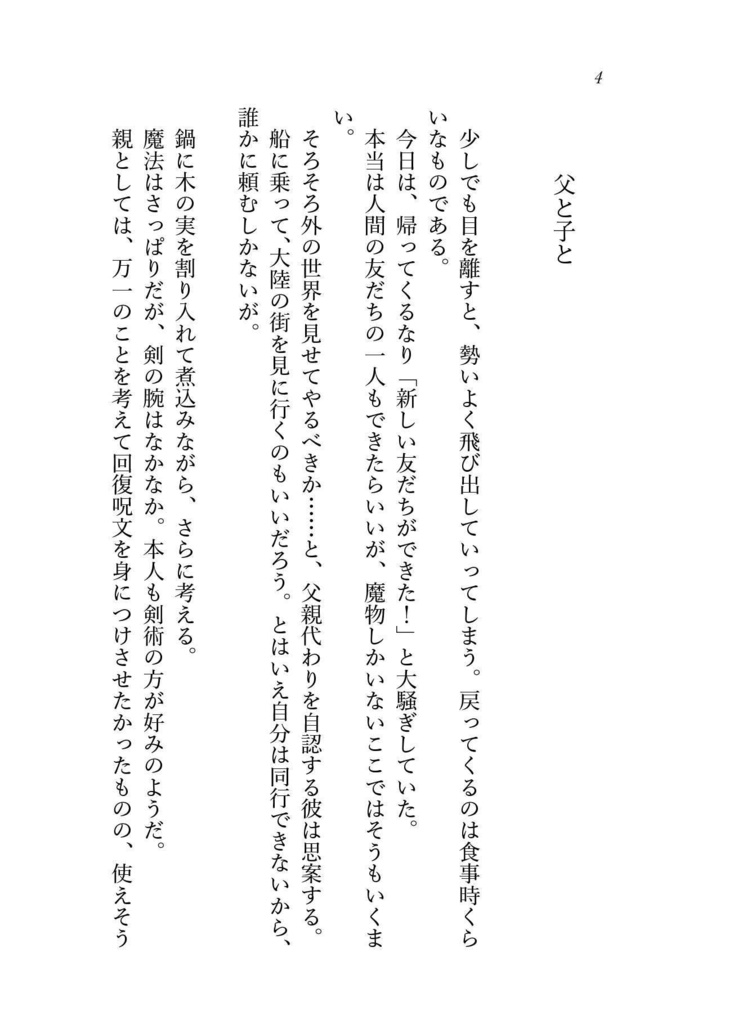 4
父と子と
少しでも目を離すと、勢いよく飛び出していってしまう。戻ってくるのは食事時くら
いなものである。
今日は、帰ってくるなり「新しい友だちができた！」と大騒ぎしていた。
本当は人間の友だちの一人もできたらいいが、魔物しかいないここではそうもいくま
い。
そろそろ外の世界を見せてやるべきか……と、父親代わりを自認する彼は思案する。
船に乗って、大陸の街を見に行くのもいいだろう。とはいえ自分は同行できないから、
誰かに頼むしかないが。
鍋に木の実を割り入れて煮込みながら、さらに考える。
魔法はさっぱりだが、剣の腕はなかなか。本人も剣術の方が好みのようだ。
親としては、万一のことを考えて回復呪文を身につけさせたかったものの、使えそう